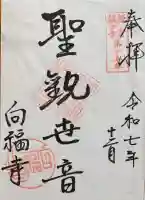 奉拝
令和七年
十二月
聖観世音
向福寺